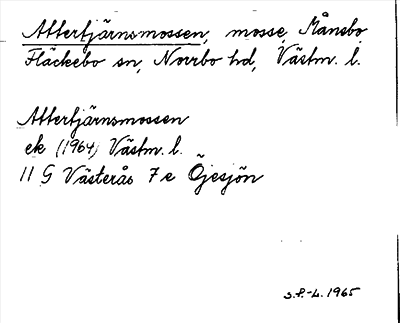 Attertjärnsmossen, mosse, Månsbo
Fläckebo sn, Norrbo hd, Västm. l.
Attertjärnsmossen
ek (1964) Västm. l.
11 G Västerås 7 e Öjesjön
S.P.-L. 1965